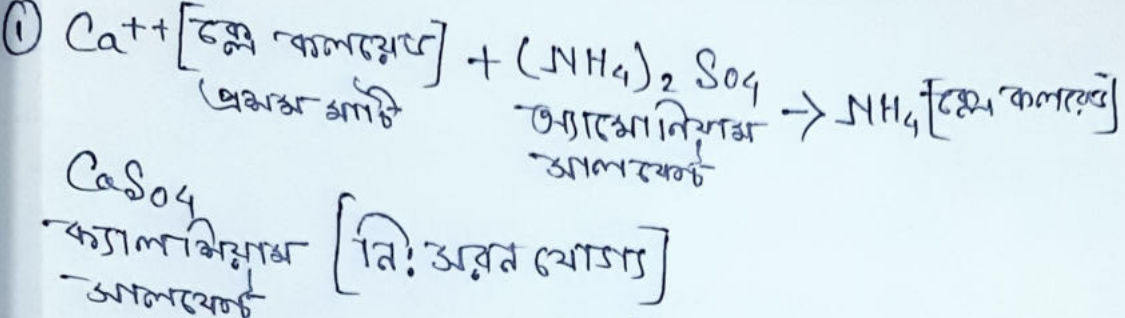 ① Ca++ [ক্লে কলয়েড] + (NH4)2 SO4 → NH4 [ক্লে কলয়েড]
প্রশম মাটি অ্যামোনিয়াম
সালফেট
CaSO4
ক্যালসিয়াম [নিঃসরন যোগ্য]
সালফেট